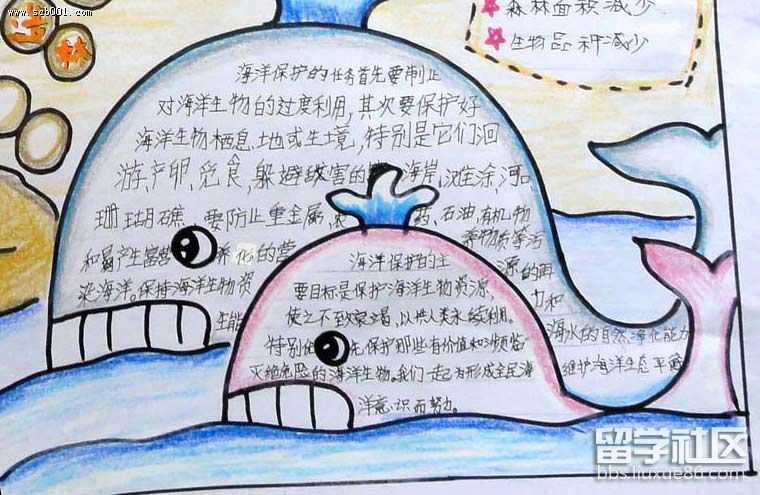 www.szb001.com
林
森林面积减少
生物品种减少
海洋保护的任务首先要制止
对海洋生物的过度利用,其次要保护好
海洋生物栖息地或生境,特别是它们洄
游、产卵、觅食、躲避 害的 海岸、 涂、河口
珊瑚礁、要防止重金属、农 药、石油、有机物
和易产生富营 养化的营 养物质等污
染海洋。保持海洋生物资 源的再
生能 力和
海水的自然净化能力
维护海洋生态平衡
海洋保护的主
要目标是保护海洋生物资源,
使之不致衰竭,以供人类永续利用。
特别 先保护那些有价值和濒临
灭绝危险的海洋生物。我们一起为形成全民海
洋意识而努力。
留学社区
bbs.liuxue86.com